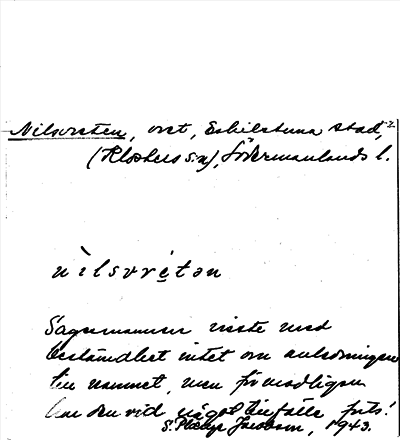 Nilsvreten, ort, Eskilstuna stad,
(Klosters sn), Södermanlands l.
nìlsvre̜tən
Sagesmannen visste med
bestämdhet intet om anledningen
till namnet, men förmodligen
har den vid något tillfälle
S. Jacobson, 1943.